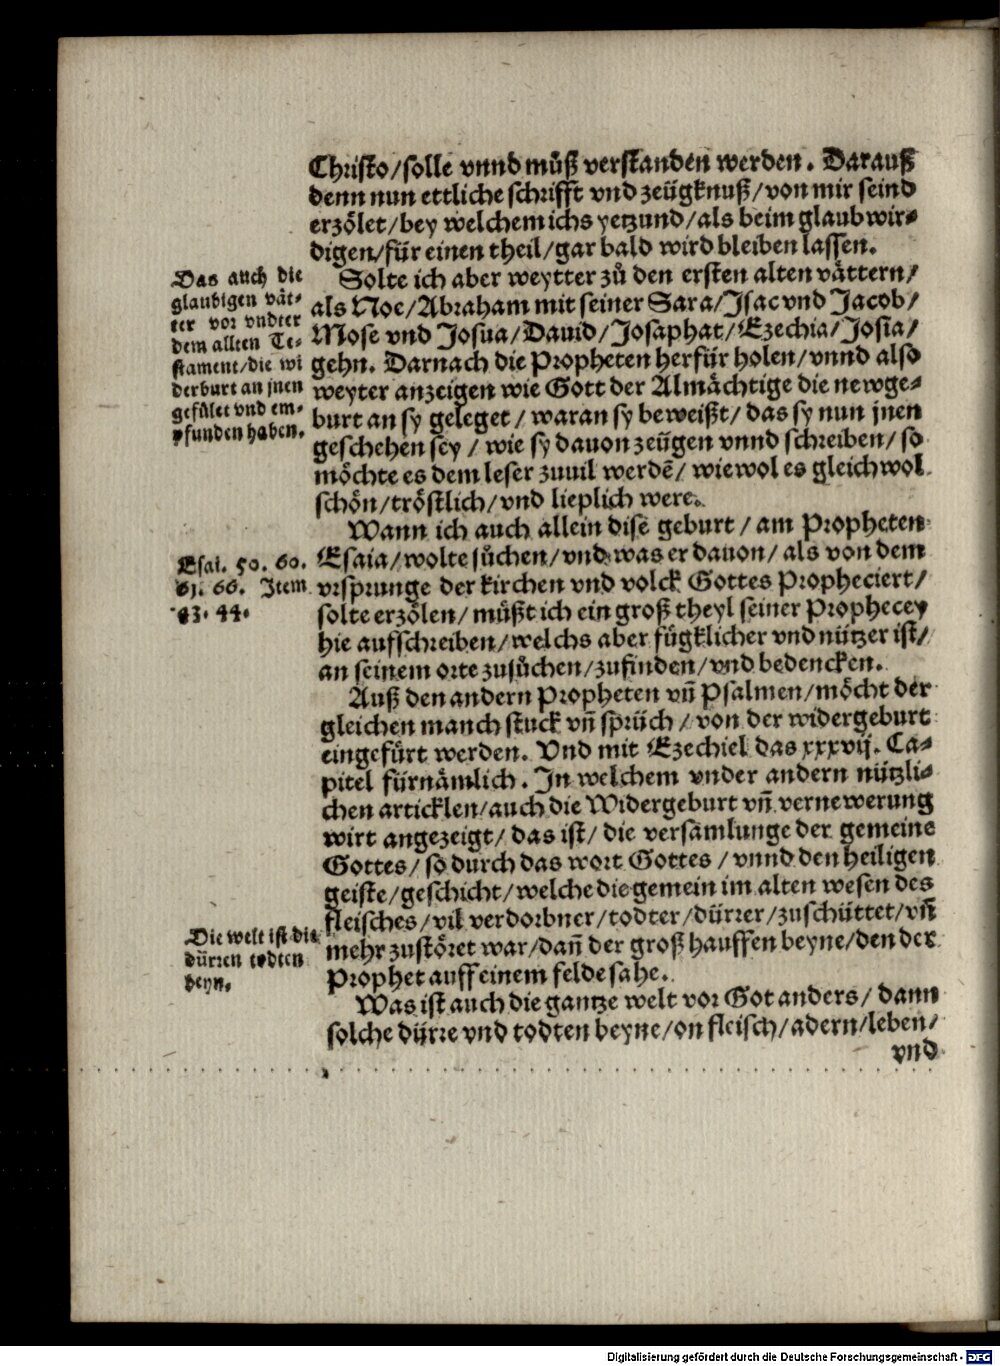 Christo/solle vnnd můß verstanden werden. Darauß
denn nun ettliche schrifft vnd zeügknuß/von mir seind
erzölet/bey welchem ichs yetzund/als beim glaubwir⸗
digen/für einen theil/gar bald wird bleiben lassen.
Das auch die
glaubigen vät⸗
ter vor vndter
dem allten Te⸗
stament/die wi
derburt an jnen
gefület vnd em⸗
pfunden haben.
Solte ich aber weytter zů den ersten alten vättern/
als Noe/Abraham mit seiner Sara/Isac vnd Jacob/
Mose vnd Josua/Dauid/Josaphat/Ezechia/Josia/
gehn. Darnach die Propheten herfür holen/vnnd also
weyter anzeigen wie Gott der Almächtige die newge⸗
burt an sy geleget/waran sy beweißt/das sy nun jnen
geschehen sey/wie sy dauon zeügen vnnd schreiben/so
möchte es dem leser zuuil werdē/wiewol es gleichwol
schön/tröstlich/vnd lieplich were.
Wann ich auch allein dise geburt/am Propheten
Esai. 50. 60.
61. 66. Item
43. 44.
Esaia/wolte sůchen/vnd was er dauon/als von dem
vrsprunge der kirchen vnd volck Gottes Propheciert/
solte erzölen/müßt ich ein groß theyl seiner Prophecey
hie aufschreiben/welchs aber fügklicher vnd nützer ist/
an seinem orte zusůchen/zufinden/vnd bedencken.
Auß den andern Propheten vn̄ Psalmen/möcht der
gleichen manch stuck vn̄ sprüch/von der widergeburt
eingefürt werden. Vnd mit Ezechiel das xxxvij. Ca⸗
pitel fürnämlich. In welchem vnder andern nützli⸗
chen articklen/auch die Widergeburt vn̄ vernewerung
wirt angezeigt/das ist/die versamlunge der gemeine
Gottes/so durch das wort Gottes/vnnd den heiligen
geiste/geschicht/welche die gemein im alten wesen des
fleisches/vil verdorbner/todter/dürrer/zuschüttet/vn̄
Die welt ist die
dürren todten
beyn.
mehr zustöret war/dan̄ der groß hauffen beyne/den der
Prophet auff einem felde sahe.
Was ist auch die gantze welt vor Got anders/dann
solche dürre vnd todten beyne/on fleisch/adern/leben/
vnd
Digitalisierung gefördert durch die Deutsche Forschungsgemeinschaft - DFG